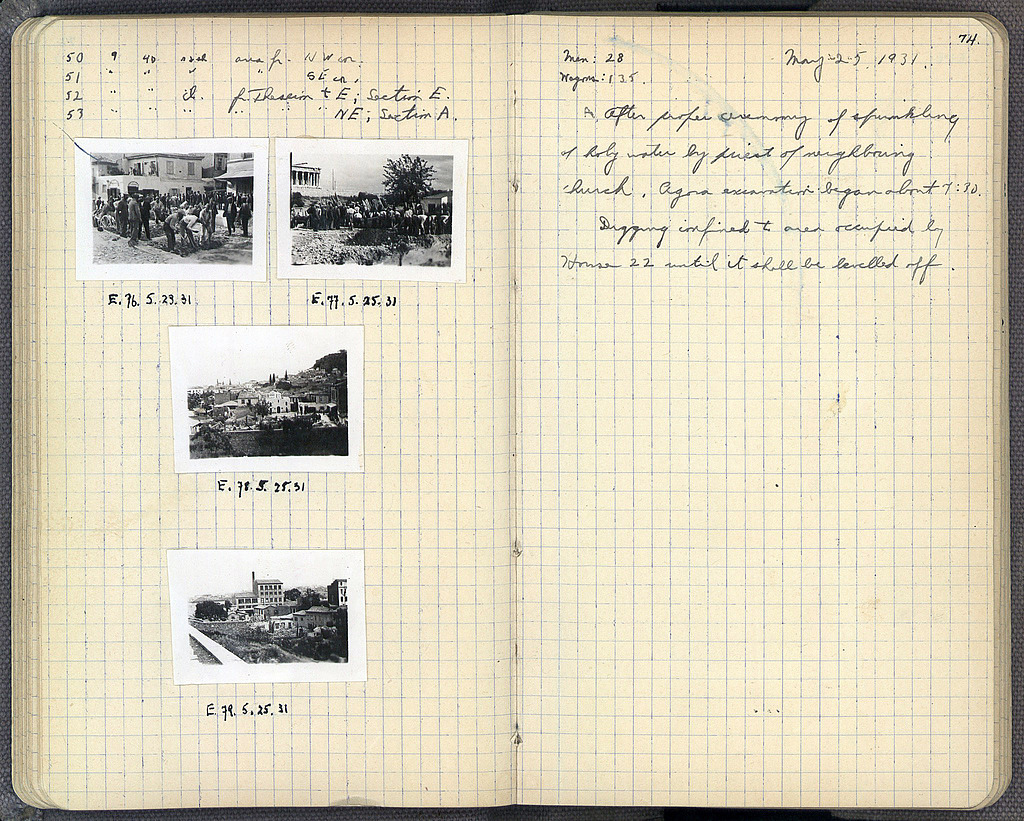 50 9 40 area fr. NW cor.
51 " " " " SE cor.
52 " " cl. fr. Theseion to E; Section E.
53 " " " " " NE; Section A.
E. 76. 5. 25. 31
E. 77. 5. 25. 31
E. 78. 5. 25. 31
E. 79. 5. 25. 31
74.
Men: 28 May 25, 1931.
Wagons: 135.
A. After proper ceremony of sprinkling
of holy water by priest of neighbouring
church, Agora excavation began about 7:30.
Digging confined to area occupied by
House 22 until it shall be levelled off.